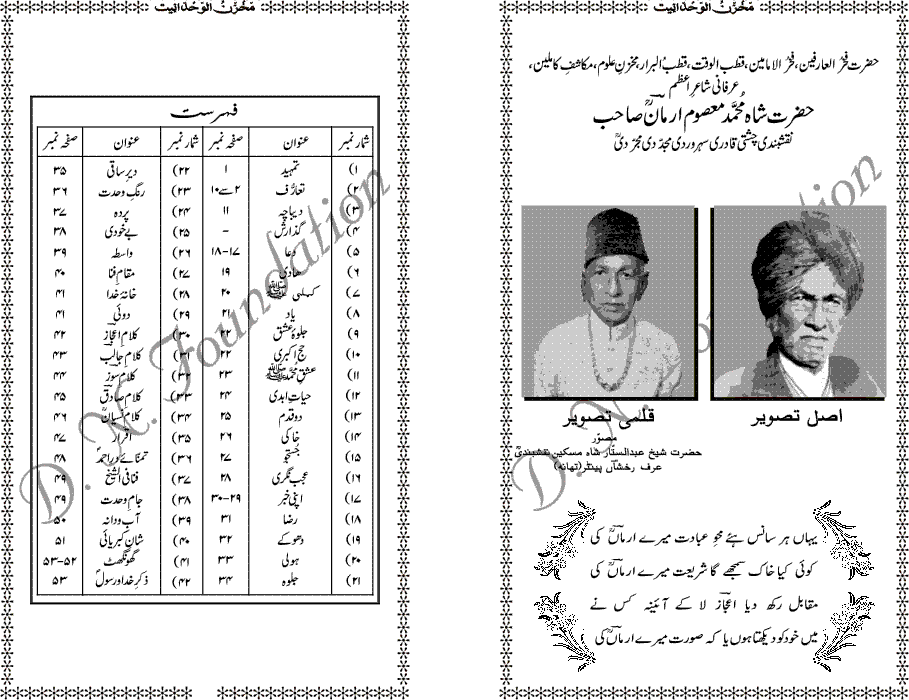 مَخزنُ الوَحدانیت
حضرت فخرُ العارفین، فخرُ الامامین، قطب الوقت، قطبُ البرار، مخزنِ علوم، مکاشفِ کاملین،
عرفانی شاعرِ اعظم
حضرت شاہ محمّد معصوم ارمانؔؒ صاحب
نقشبندی چشتی قادری سہروردی مجدّدی مجرّدیؒ
اصل تصویر
قلمی تصویر
مصوّر
حضرت شیخ عبدالستار شاہ مسکین نقشبندیؒ
عرف رخشاںؔ پینٹر (تھانہ)
یہاں ہر سانس ہئے محوِ عبادت میرے ارماںؔؒ کی
کوئی کیا خاک سمجھے گا شریعت میرے ارماںؔؒ کی
مقابل رکھ دیا اعجازؔ لا کے آئینہ کس نے
میں خود کو دیکھتا ہوں یا کہ صورت میرے ارماںؔؒ کی
D. N. Foundation
مَخزنُ الوَحدانیت
فہرست
شمار نمبر عنوان صفحہ نمبر شمار نمبر عنوان صفحہ نمبر
۱) تمہید ۱ ۲۲) دیرِ ساقی ۳۵
۲) تعارُف ۲ سے ۱۰ ۲۳) رنگِ وحدت ۳۶
۳) دیباچہ ۱۱ ۲۴) پردہ ۳۷
۴) گذارش - ۲۵) بے خودی ۳۸
۵) دُعا ۱۷-۱۸ ۲۶) واسطہ ۳۹
۶) ھادی ۱۹ ۲۷) مقامِ فنا ۴۰
۷) کملی ﷺ ۲۰ ۲۸) خانۂ خدا ۴۱
۸) یاد ۲۱ ۲۹) دوئی ۴۱
۹) جلوۂ عشق ۲۲ ۳۰) کلامِ اعجازؔ ۴۲
۱۰) حجِ اکبری ۲۲ ۳۱) کلامِ جالبؔ ۴۳
۱۱) عشقِ محمّد ﷺ ۲۳ ۳۲) کلامِ سوزؔ ۴۴
۱۲) حیاتِ ابدی ۲۴ ۳۳) کلامِ صادقؔ ۴۵
۱۳) دو قدم ۲۵ ۳۴) کلامِ نسیاںؔؒ ۴۶
۱۴) خاکی ۲۶ ۳۵) اقرار ۴۷
۱۵) جستجو ۲۷ ۳۶) تمنّائے درِ احمدؐ ۴۸
۱۶) عجب نگری ۲۸ ۳۷) فنافی الشیخ ۴۹
۱۷) اپنی خبر ۲۹-۳۰ ۳۸) جامِ وحدت ۴۹
۱۸) رضا ۳۱ ۳۹) آب و دانہ ۵۰
۱۹) دھوکے ۳۲ ۴۰) شانِ کبریائی ۵۱
۲۰) ہولی ۳۳ ۴۱) گھونگھٹ ۵۲-۵۳
۲۱) جلوہ ۳۴ ۴۲) ذکرِ خدا و رسولؐ ۵۳
D. N. Foundation